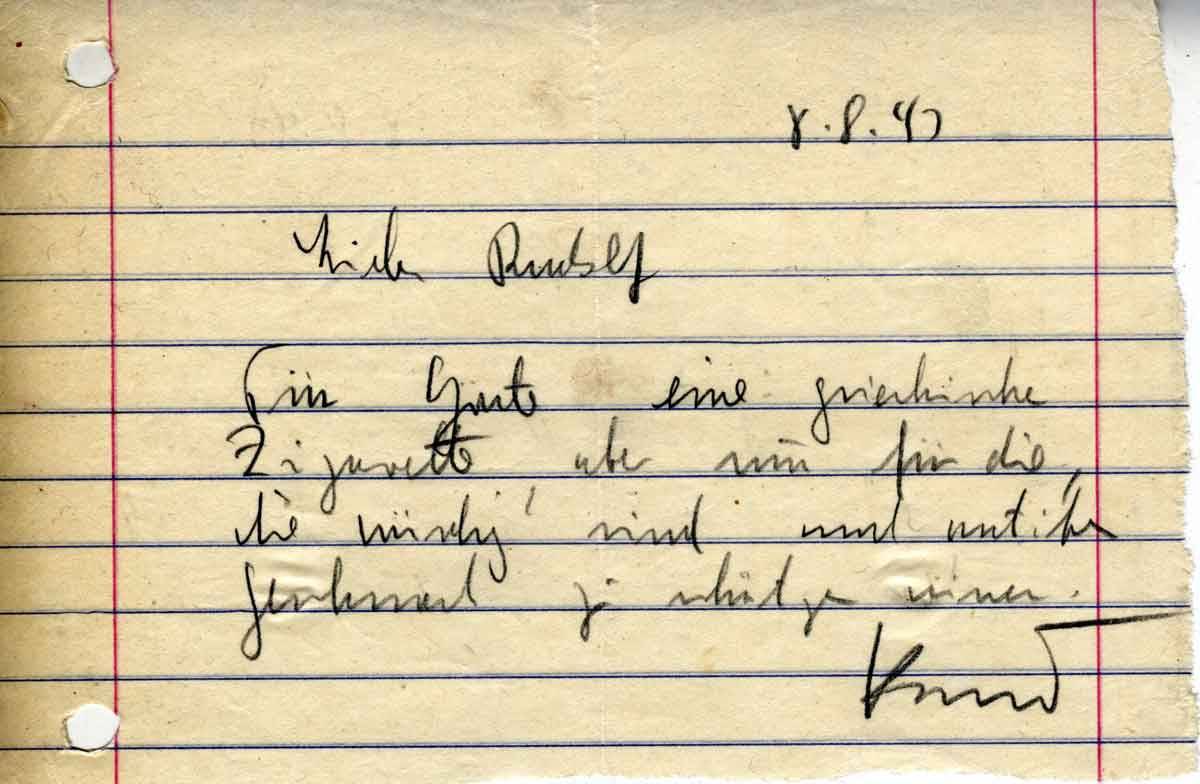 8.8.47
Lieber Rudolf
Für Gäste eine griechische
Zigarette aber nur für die,
die würdig sind und antiken
Geschmack zu schätzen wissen.
Knud